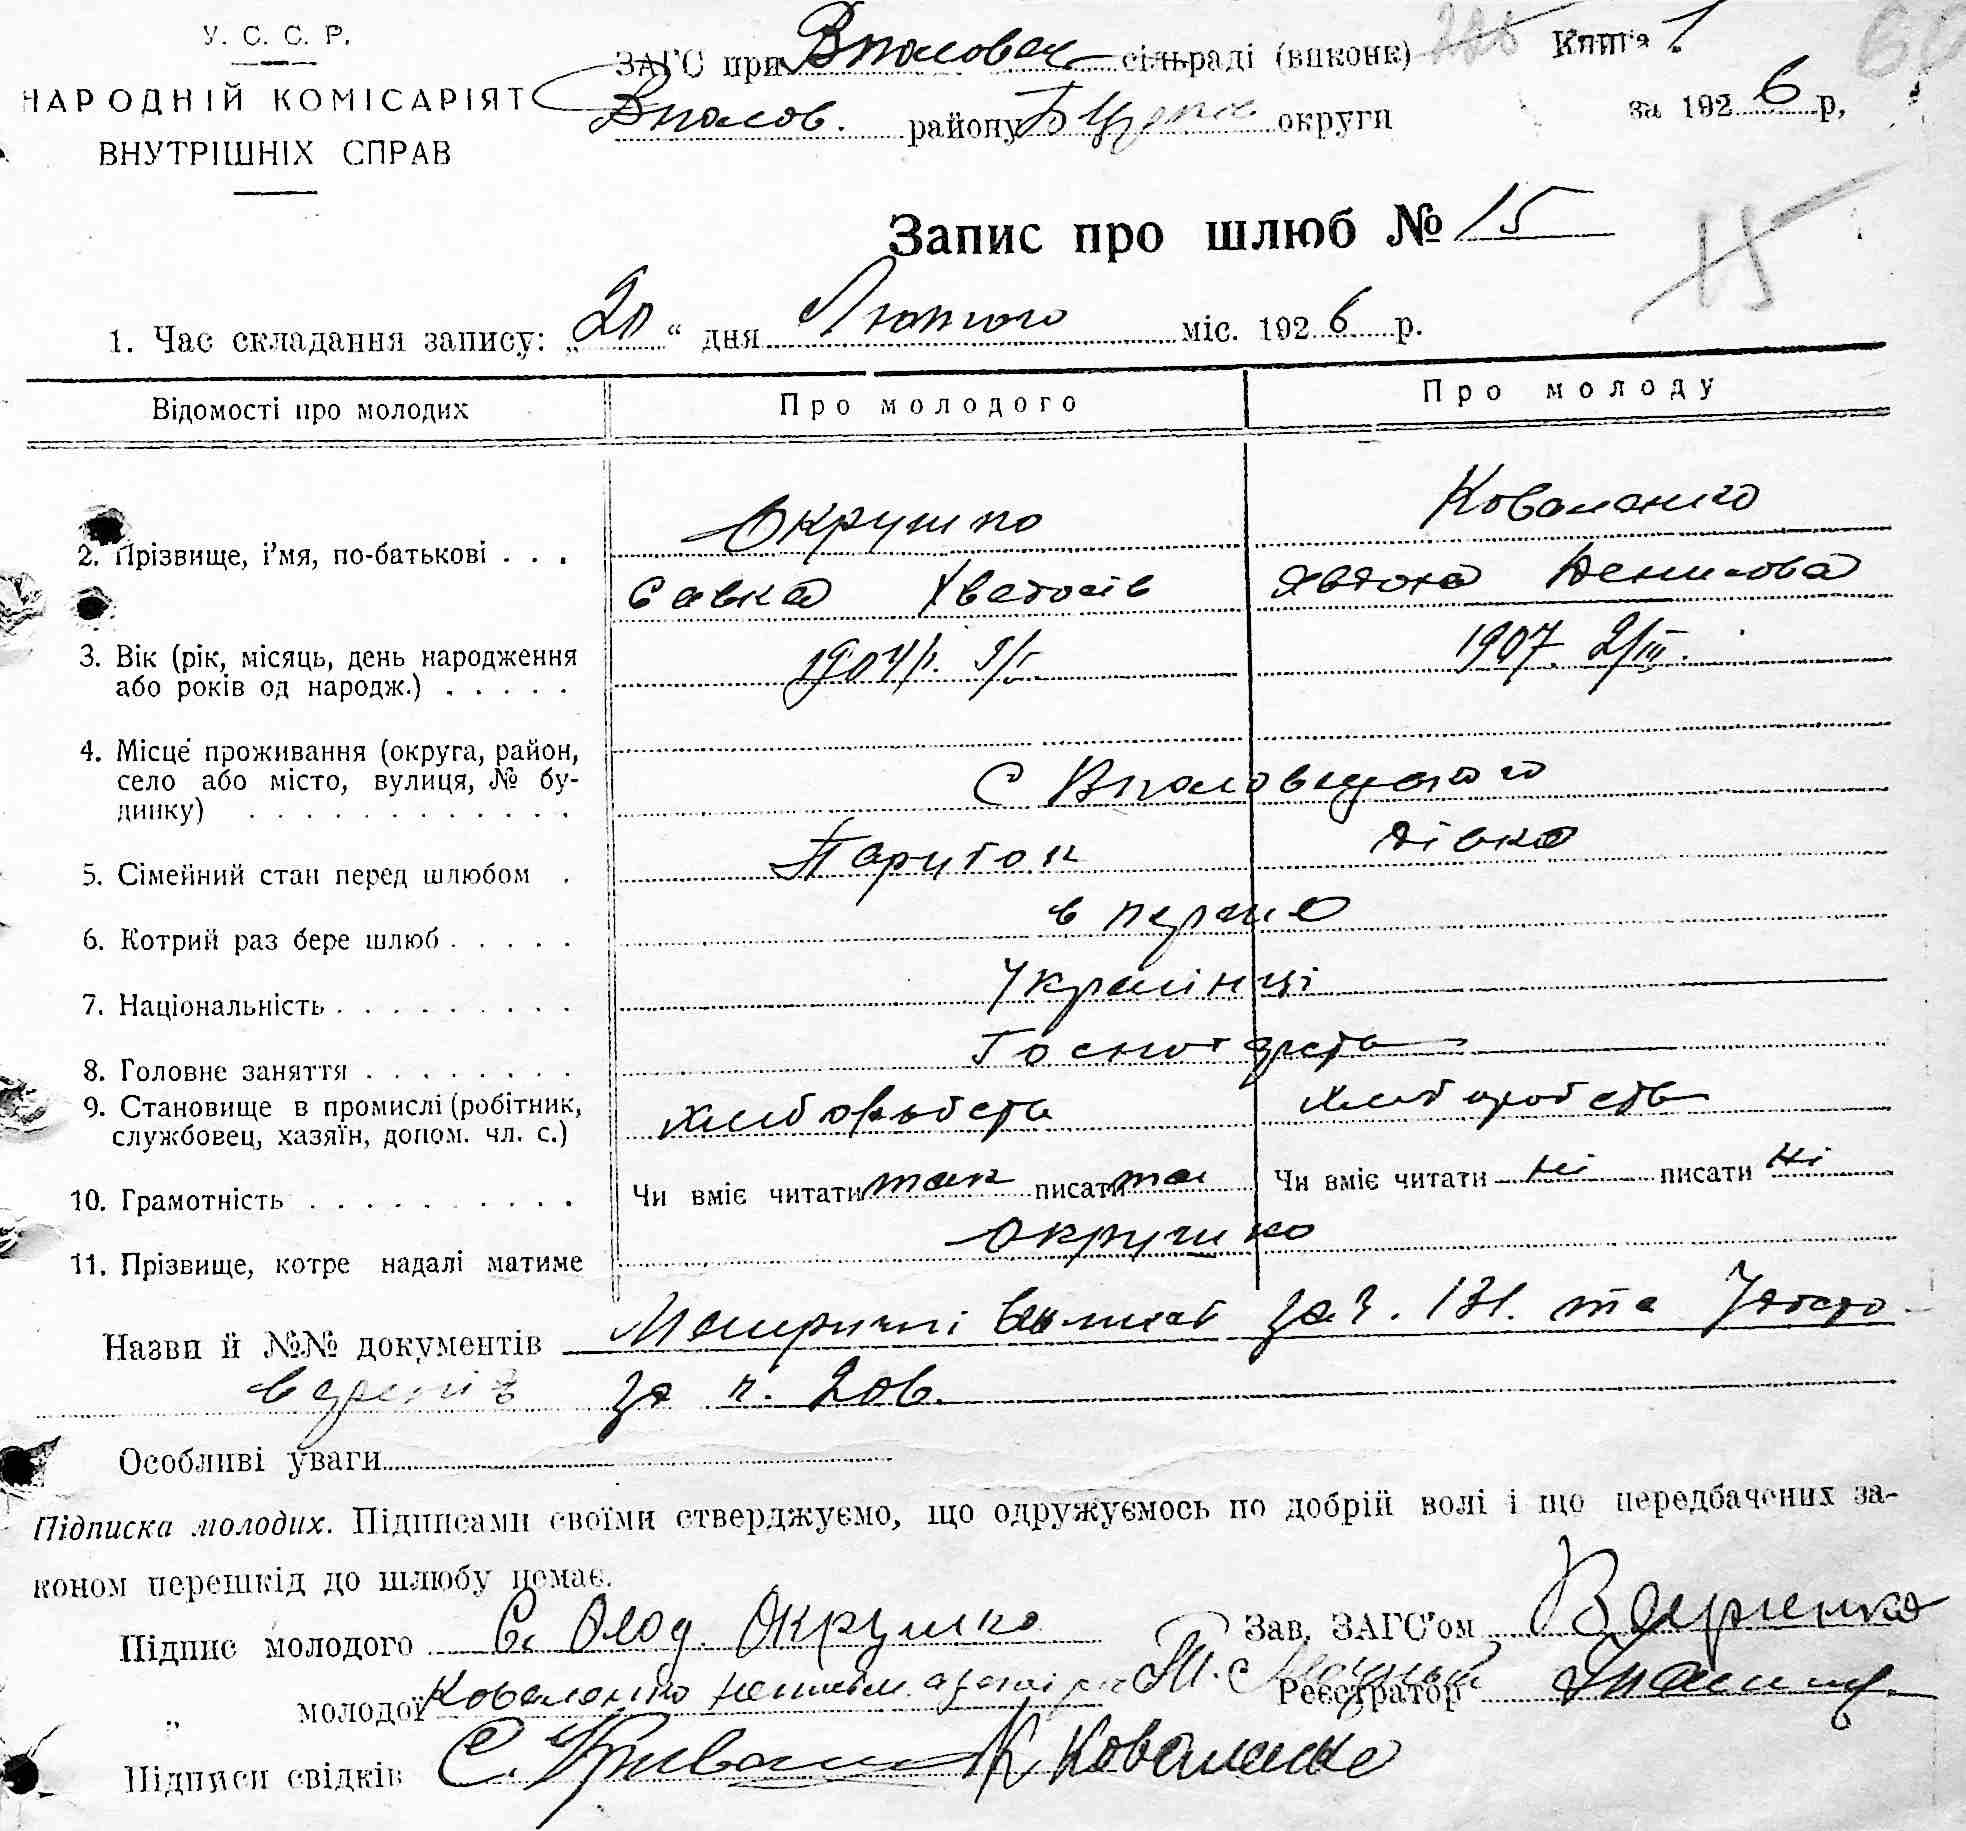 У. С. С. Р.
НАРОДНІЙ КОМІСАРІЯТ
ВНУТРІШНІХ СПРАВ
ЗАГС при сільраді (виконк) Книга 1
району округи за 1926 р,
Запис про шлюб № 15
15
1. Час складання запису: „ “ дня Лютого міс. 1926 р.
Відомості про молодих Про молодого Про молоду
Окрушко Коваленко
2. Прізвище, і'мя, по-батькові . . .
Савка Явдоха Денисова
3. Вік (рік, місяць, день народження 1907. 2/III.
або років од народж.) . . . . .
4. Місце проживання (округа, район,
село або місто, вулиця, № бу-
динку) . . . . . . . . . . . .
Парубок дівка
5. Сімейний стан перед шлюбом .
в перше
6. Котрий раз бере шлюб . . . . .
Українці
7. Національність . . . . . . . . .
8. Головне заняття . . . . . . . .
9. Становище в промислі (робітник, хліборобств хліборобств
службовец, хазяїн, допом. чл. с.)
10. Грамотність . . . . . . . . . . Чи вміє читати так писати так Чи вміє читати ні писати ні
Окрушко
11. Прізвище, котре надалі матиме
Назви й №№ документів Метричні за ч. 131. та
за ч. 206.
Особливі уваги
Підписка молодих. Підписами своїми стверджуємо, що одружуємось по добрій волі і що передбачених за-
коном перешкід до шлюбу немає.
Підпис молодого Окрушко Зав. ЗАГС'ом
„ молодої Коваленко Реєстратор
Підписи свідків С. Коваленко